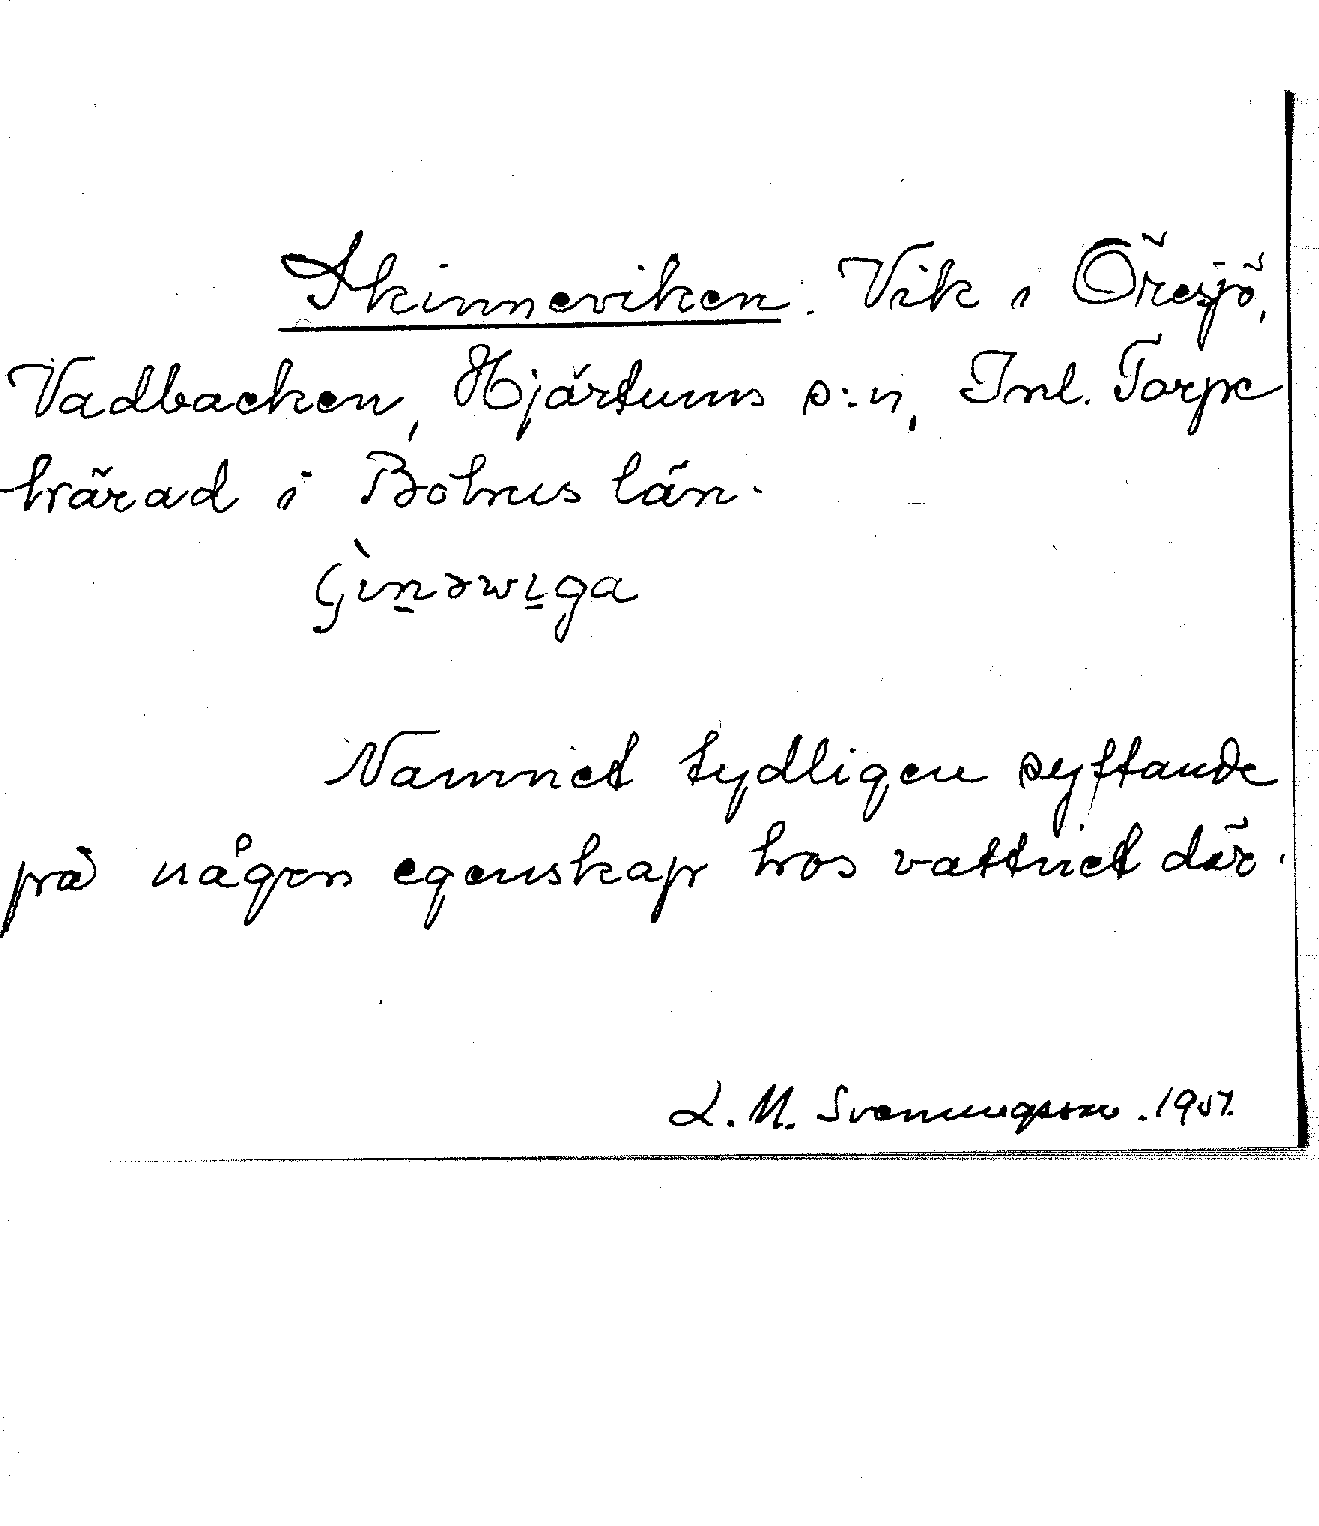 Skinneviken. Vik i Öresjö,
Vadbacken, Hjärtums s:n, Inl. Torpe
härad i Bohus län.
Namnet tydligen syftande
på någon egenskap hos vattnet där.
L. M. Svenungsson. 1957.